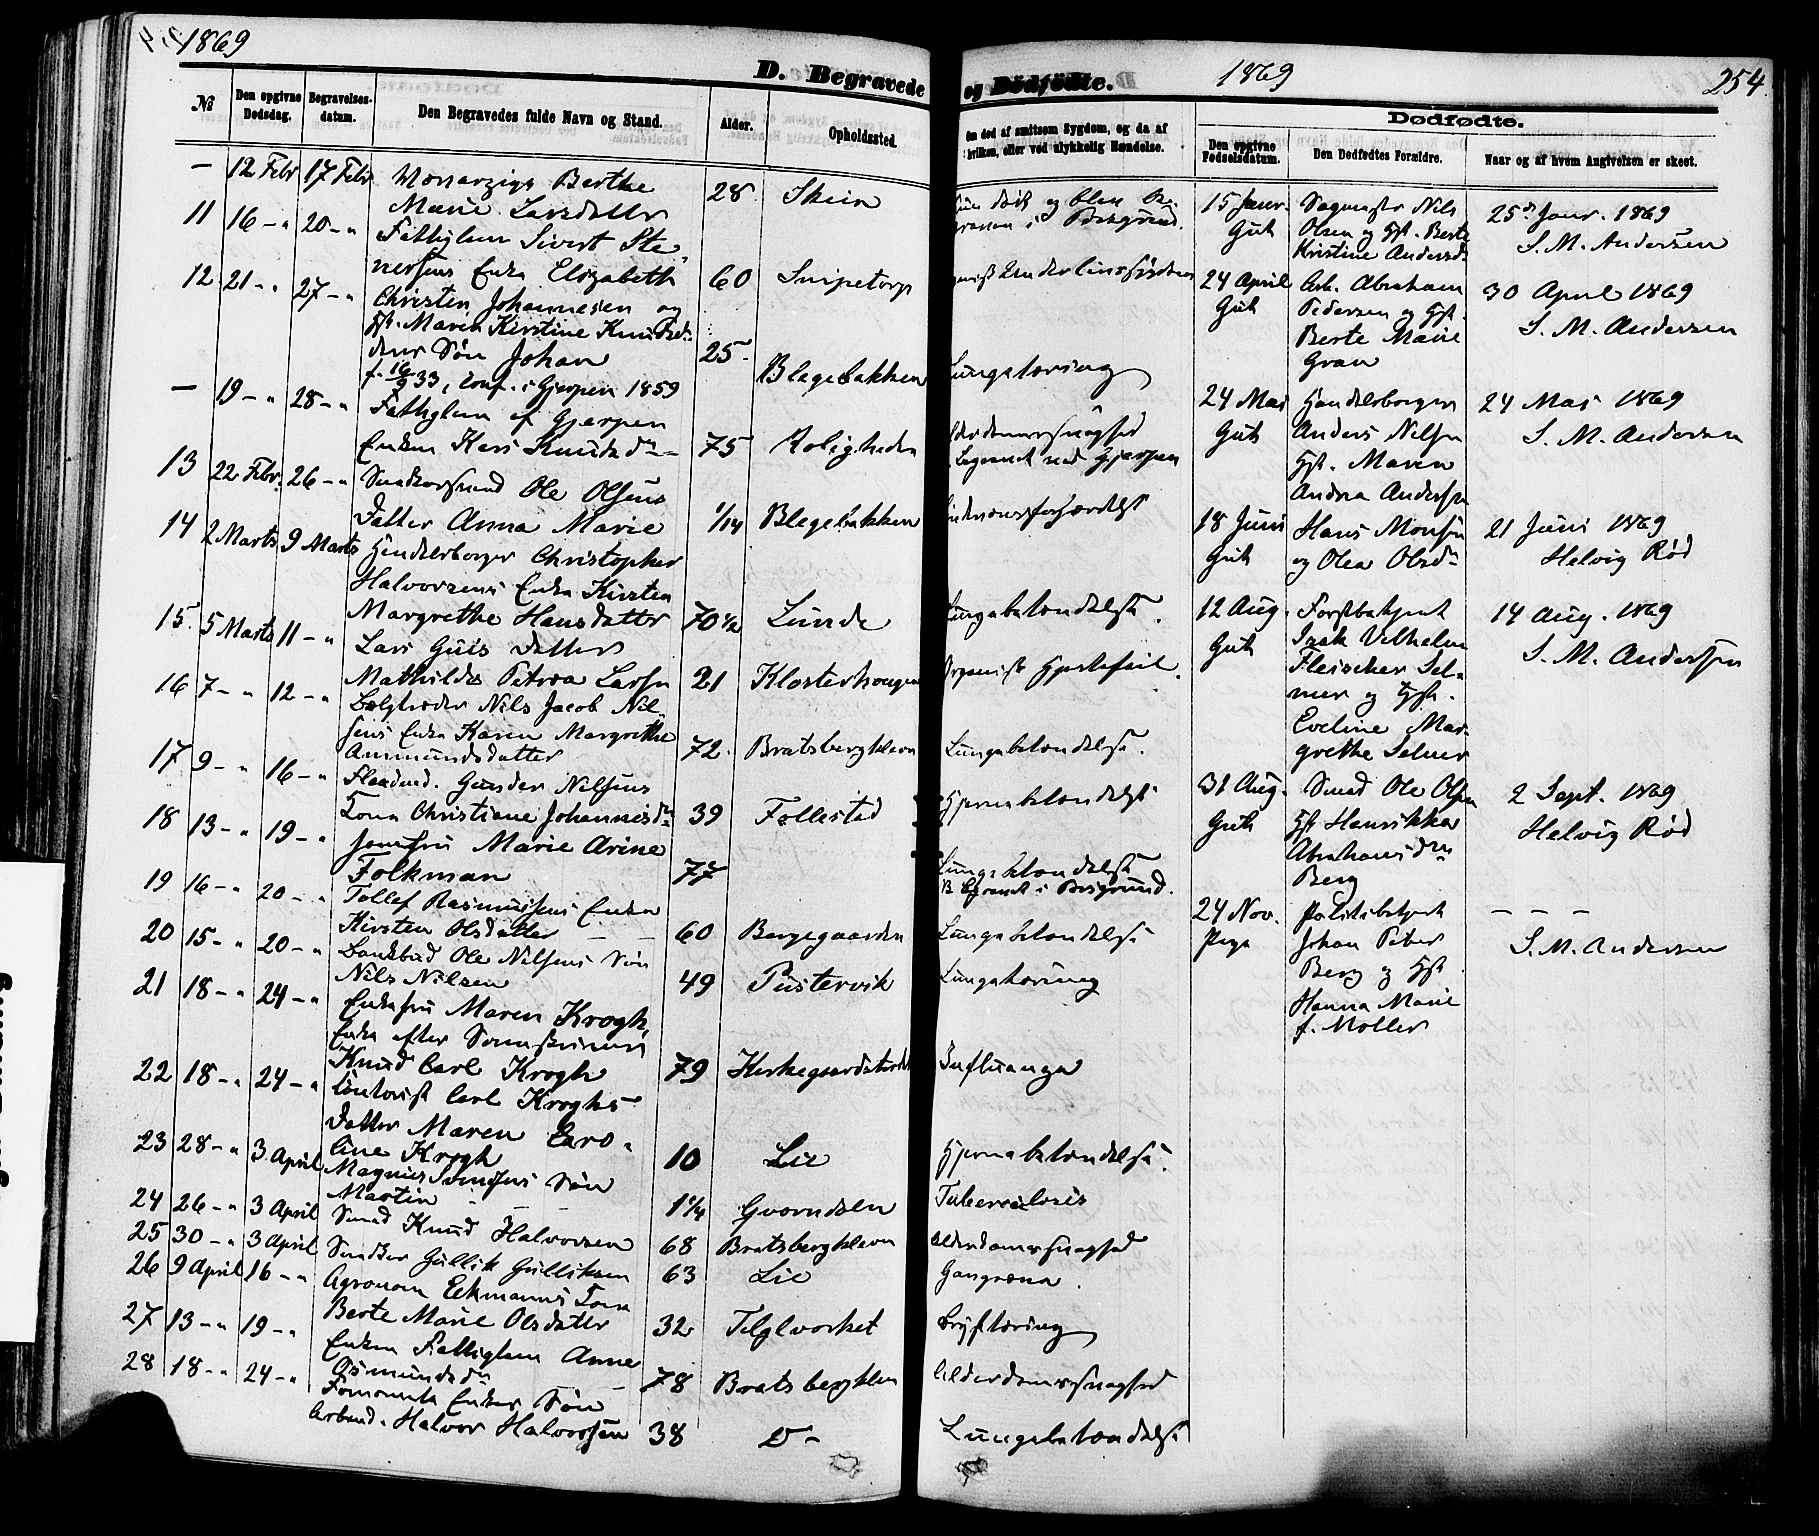 1869
D. Begravede
№
Den opgivne Dødsdag.
Begravelses-datum.
Den Begravedes fulde Navn og Stand.
Alder.
Opholdssted.
— 12 Febr 17 Febr Berthe
Marie Larsdatter 28 Skien
11 16 -„ 20 -„ Fattiglem Sivert Ste-
nersens Enke Elizabeth 60 Snipetorp
12 21 -„ 27 -„ Christen Johannesen og
Hst. Maren Kirstine Knudsd.
deres Søn Johan 25 Blegebakken
f. 16/9 33, Conf. i Gjerpen 1859
— 19 -„ 28 -„ Fattiglem af Gjerpen
Enken Kari Knudsd. 75 Roligheden
13 22 Febr. 26 -„ Smedsvend Ole Olsens
Datter Anna Marie 1/14 Blegebakken
14 2 Marts 9 Marts Handelsborger Christopher
Halvorsens Enke Kirsten
Margrethe Hansdatter 70 1/2 Lunde
15 5 Marts 11 -„ Lars Datter
Mathilde Petrea Larsen 21 Klosterhougen
16 7 -„ 12 -„ Bælgtræder Nils Jacob Nil-
sens Enke Karen Margrethe
Ammundsdatter 72 Bratsbergkleven
17 9 -„ 16 -„ Gunder Nilsens
Kone Christiane Johannesd. 39 Follestad
18 13 -„ 19 -„ Jomfru Marie Arine
Folkman 77
19 16 -„ 20 -„ Tollef Rasmussens Enke
Kirsten Olsdatter 60 Bergegaarden
20 15 -„ 20 -„ Bankbud Ole Nilsens Søn
Nils Nilsen 49 Pustervik
21 18 -„ 24 -„ Enkefru Maren Krogh,
Enke efter
Knud Carl Krogh 79
22 18 -„ 24 -„ Contorist Carl Kroghs
Datter Maren Caro-
line Krogh 10 Lie
23 28 -„ 3 April Magnus Søn
Martin 1 1/4
24 26 -„ 3 April Smed Knud Halvorsen 68 Bratsbergkleven
25 30 -„ 3 April Gullik Gulliksen 63 Lie
26 9 April 16 -„ Agronom Eckmanns Kone
Berte Marie Olsdatter 32 Teglverket
27 13 -„ 19 -„ Enken Fattiglem Anne
Osmundsd. 78 Bratsbergkleven
28 18 -„ 24 -„ Enkes Søn
Arbeid. Halvor Halvorsen 38 D-
og Dødfødte.
1869
254.
Om død af smitsom Sygdom, og da af hvilken, eller ved ulykkelig Hændelse.
Dødfødte.
Den opgivne Fødselsdatum.
Den Dødfødtes Forældre.
Naar og af hvem Angivelsen er skeet.
Lungetæring
Alderdomssvaghed
Begravet ved Gjerpen
Lungebetændelse.
Organisk Hjertefeil.
Lungebetændelse.
Hjernebetændelse
Lungebetændelse
Begravet i Porsgrund.
Lungebetændelse
Lungetæring
Influenza
Hjernebetændelse.
Tuberculosis
Alderdomssvaghed
Gangræna.
Brysttæring
Alderdomssvaghed
Lungebetændelse
15 Janr. Gut
Sagmester Nils
Olsen og Hst. Berte
Kristine Andersd.
25 Janr. 1869
S. M. Andersen
24 April Gut
Arb. Abraham
Pedersen og Hst.
Berte Marie
Gran
30 April 1869
S. M. Andersen
24 Mai Gut
Handelsborger
Anders Nilsen
Hst. Maren
Andrea Andersen
24 Mai 1869
S. M. Andersen
18 Juni Gut
Hans Monsen
og Olea Olsd.
21 Juni 1869
Helvig Rød
12 Aug. Gut
Forstbetjent
Isak Vilhelm
Fleischer Sel-
mer og Hst.
Eveline Mar-
grethe Selmer
14 Aug. 1869
S. M. Andersen
31 Aug. Gut
Smed Ole Olsen
Hst Henrikke
Abrahamsdtr
Berg
2 Sept. 1869
Helvig Rød
24 Nov. Pige
Politibetjent
Johan Peter
Berg og Hst.
Hanna Marie
f. Møller
— — —
S. M. Andersen